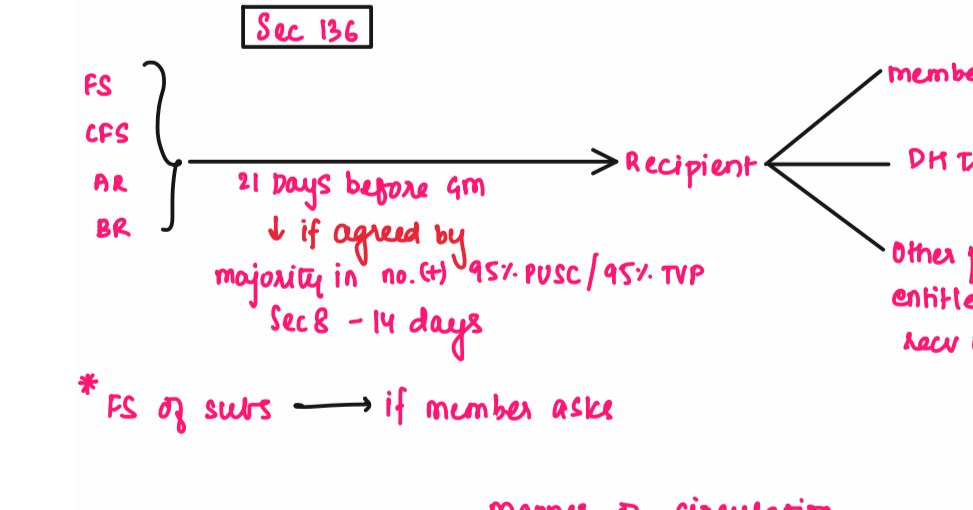 Sec 136
FS
CFS
AR
BR
21 Days before GM
↓ if agreed by
majority in no. (+) 95% PUSC / 95% TVP
Sec 8 - 14 days
Recipient
membe
DH T
Other
entitle
recv
* FS of subs → if member asks
manner of circulation